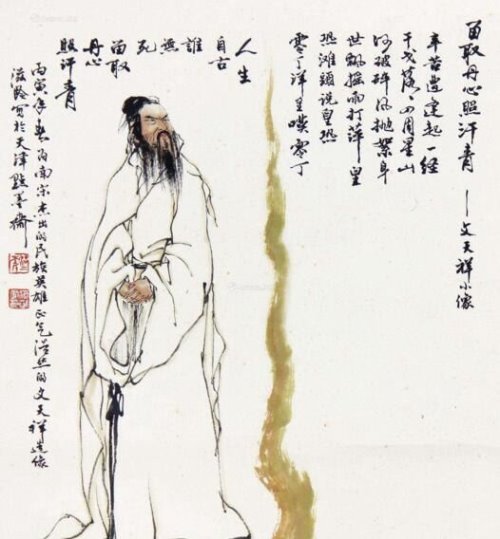 留取丹心照汗青——文天祥小像
辛苦遭逢起一经
干戈落落四周星山
河破碎风抛絮身
世飘摇雨打萍皇
恐滩头说皇恐
零丁洋里嘆零丁
人生
自古
誰
無
死
留取
丹心
照汗青
丙寅年春为南宋杰出的民族英雄正气浩然的文天祥造像
滋龄写於天津點墨齋